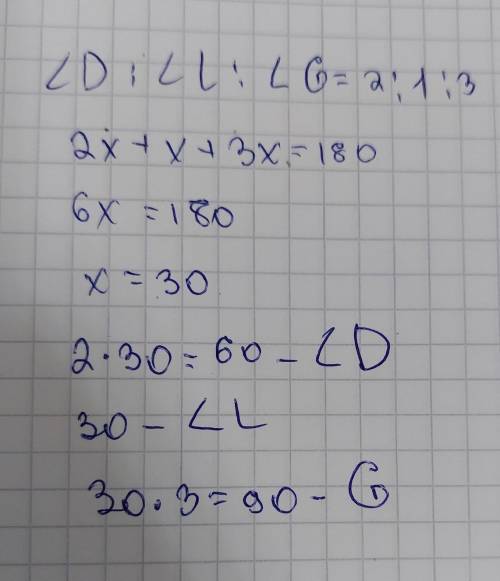 ∠D : ∠L : ∠G = 2 : 1 : 3
2x + x + 3x = 180
6x = 180
x = 30
2 · 30 = 60 - ∠D
30 - ∠L
30 · 3 = 90 - G